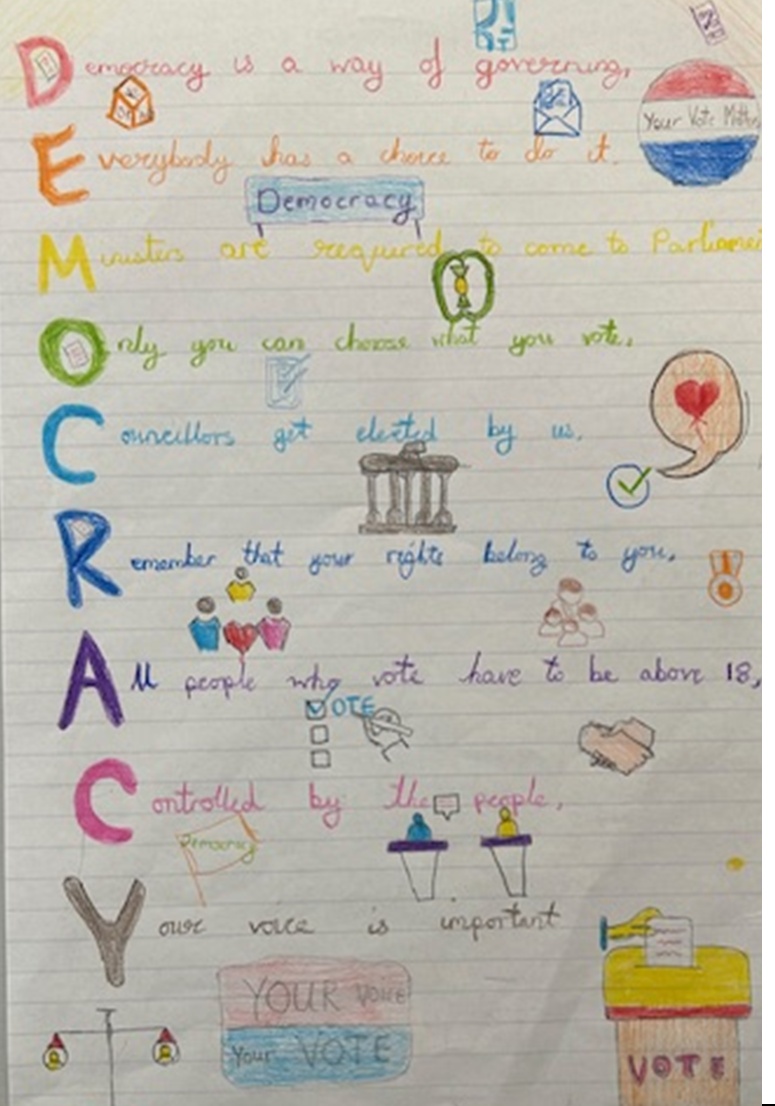 Democracy is a way of governing,
Your Vote Matters
Everybody has a choice to do it.
Democracy
Ministers are required to come to Parliamen
Only you can choose what you vote.
Councillors get elected by us.
Remember that your rights belong to you.
All people who vote have to be above 18,
VOTE
Controlled by the people,
Democracy
Your voice is important
YOUR VOICE
Your VOTE
VOTE